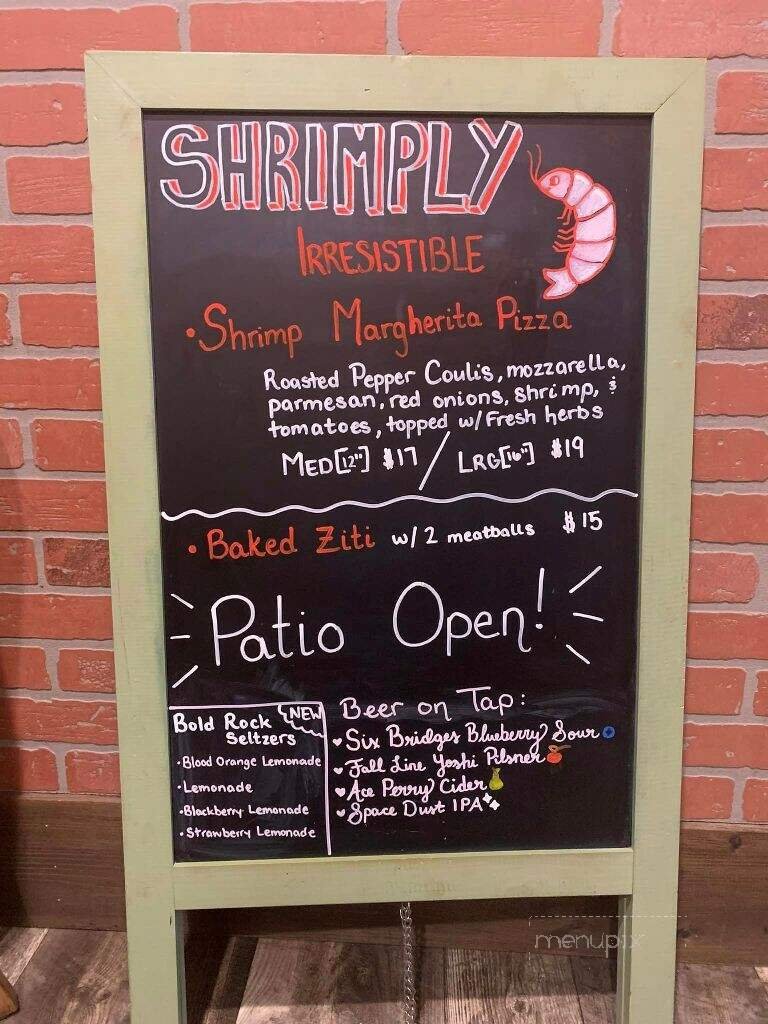 SHRIMPLY
IRRESISTIBLE
• Shrimp Margherita Pizza
Roasted Pepper Coulis, mozzarella,
parmesan, red onions, shrimp, &
tomatoes, topped w/ Fresh herbs
MED[12"] $17 / LRG[16"] $19
• Baked Ziti w/ 2 meatballs $15
Patio Open!
Bold Rock NEW
Seltzers
• Blood Orange Lemonade
• Lemonade
• Blackberry Lemonade
• Strawberry Lemonade
Beer on Tap:
♥ Six Bridges Blueberry Sour
♥ Fall Line Yoshi Pilsner
♥ Ace Perry Cider
♥ Space Dust IPA
menupix